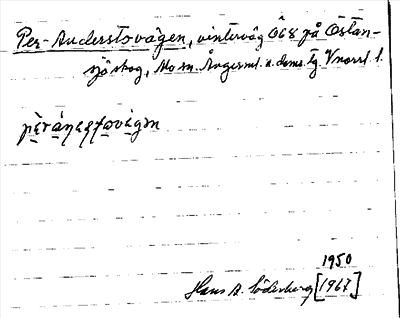 Per-Anderstovägen, vinterväg Ö68 på Östan-
sjöskog, Mo sn. Ångerml. s. doms. tg. V norrl. l.
pèránestovägen
1950
Hans A. Söderberg [1967]